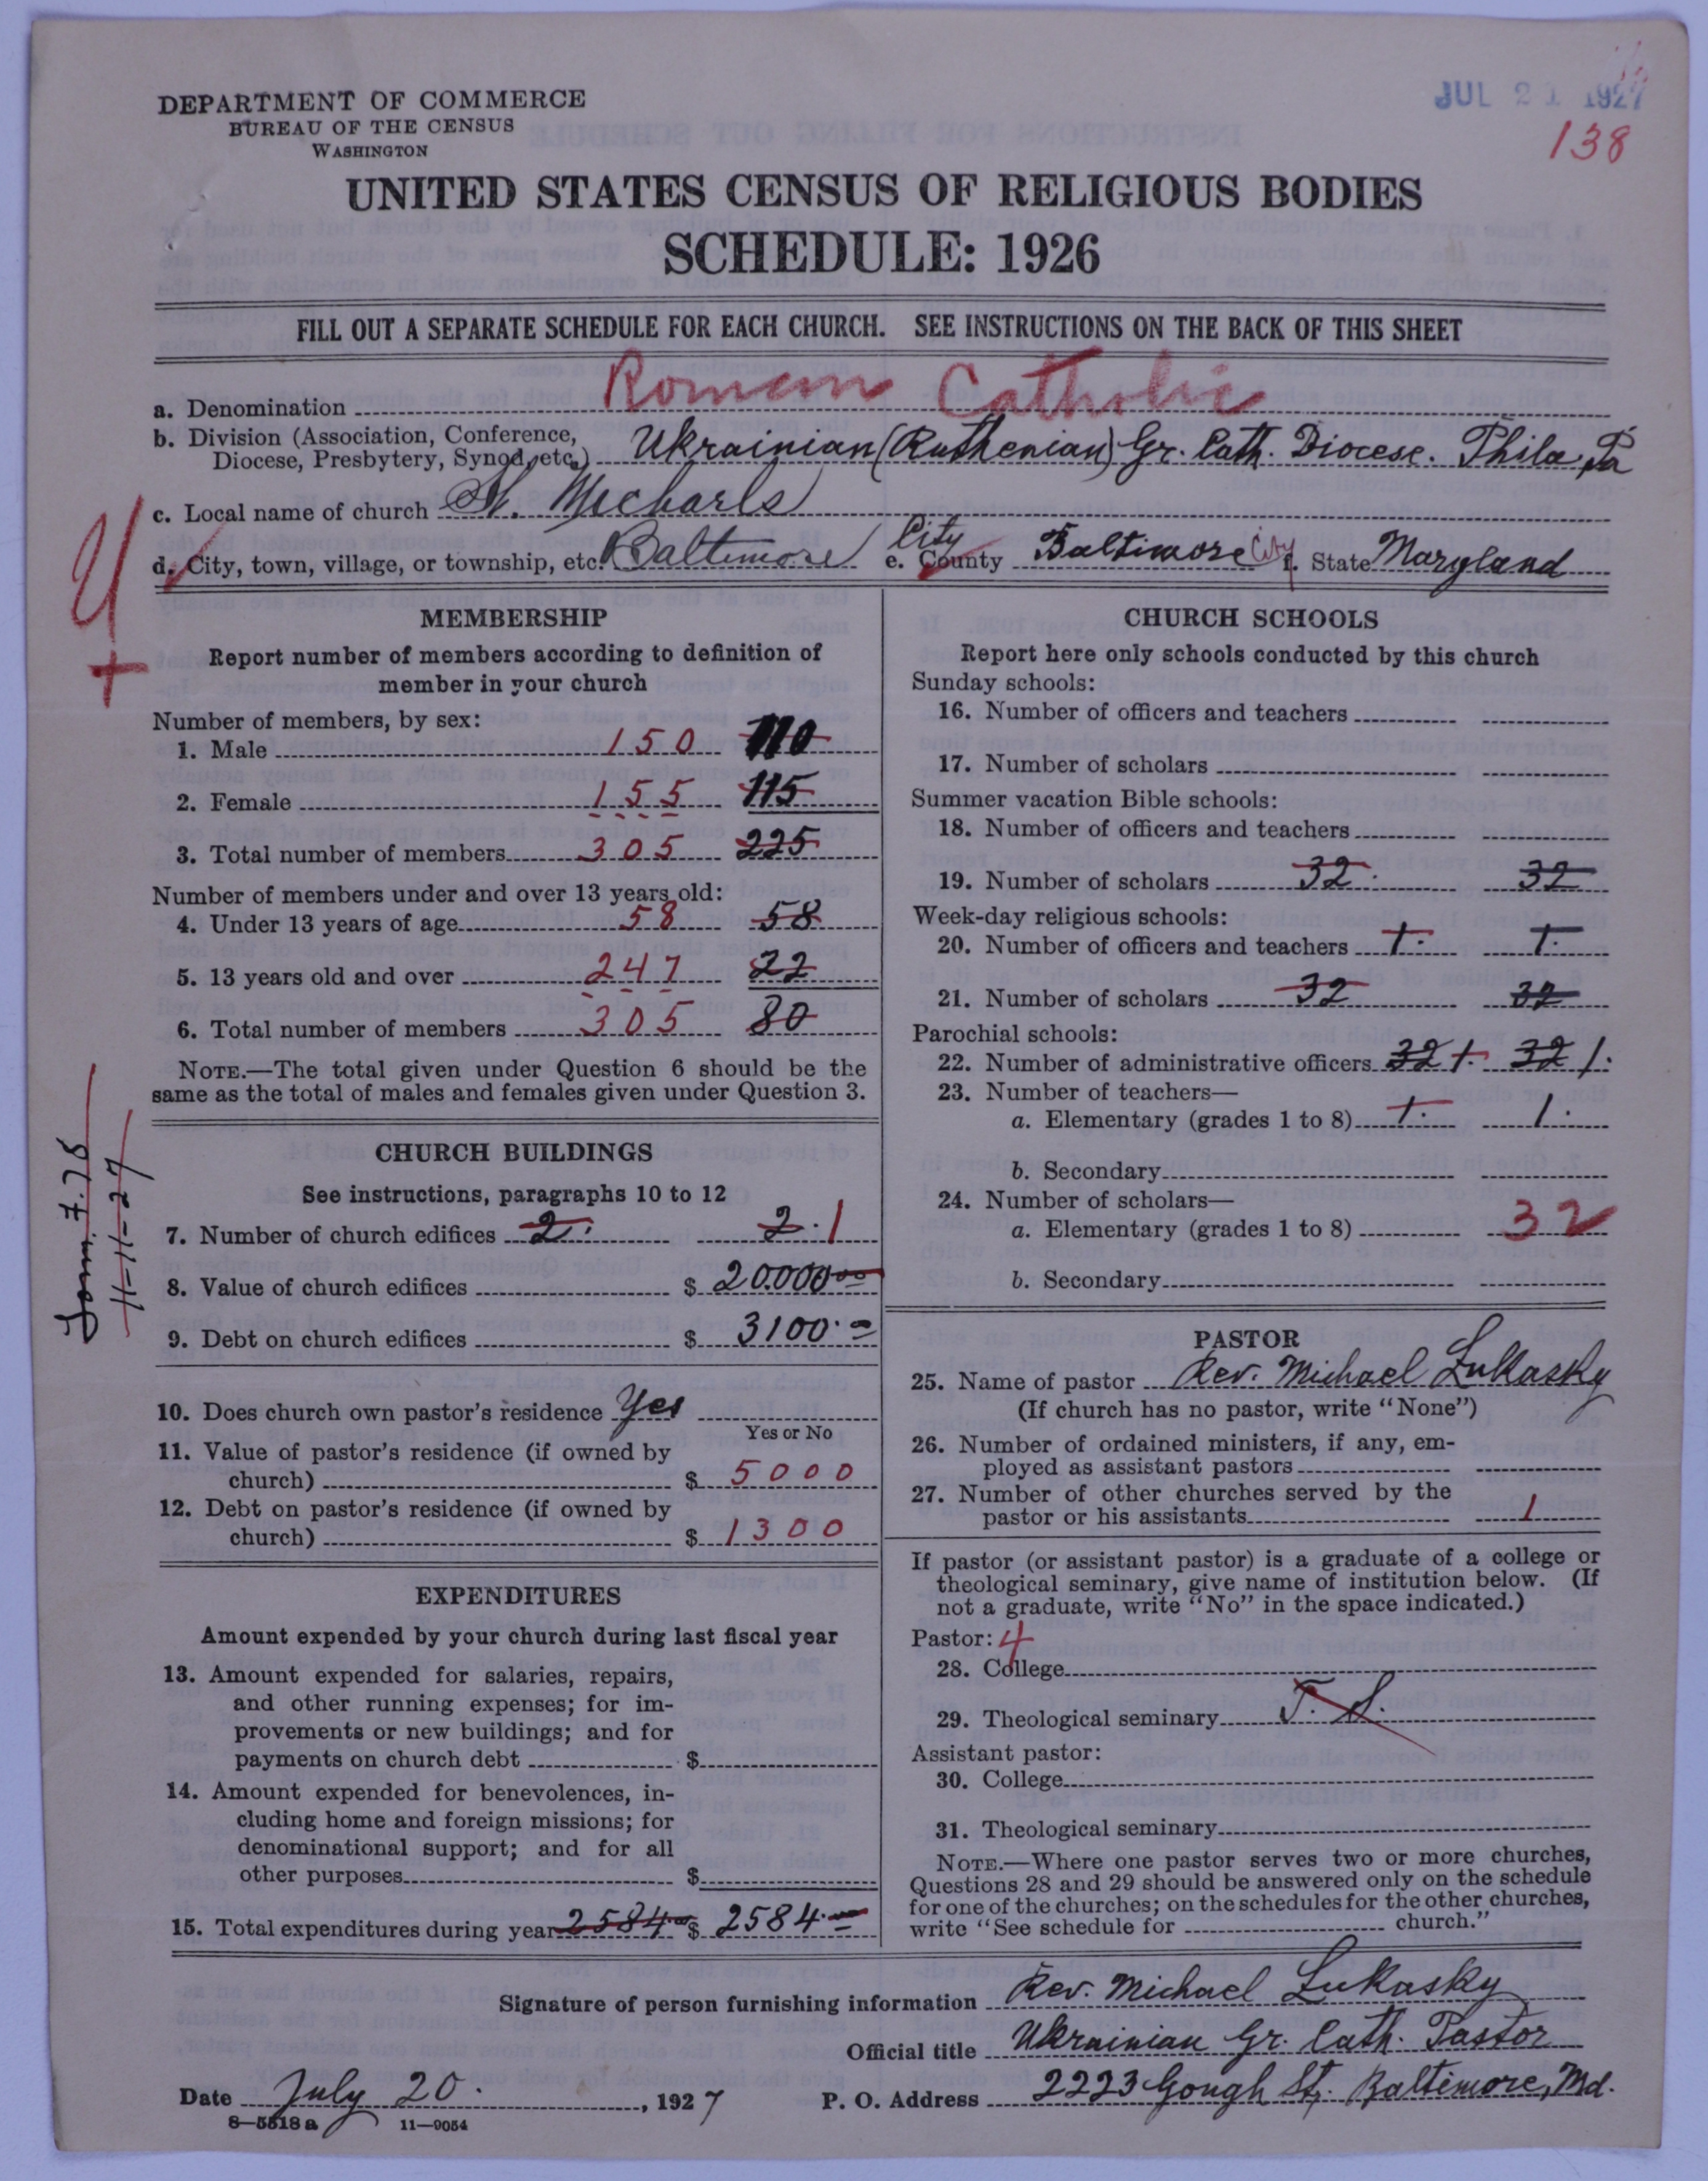 JUL 21 1927
138
DEPARTMENT OF COMMERCE
BUREAU OF THE CENSUS
WASHINGTON
UNITED STATES CENSUS OF RELIGIOUS BODIES
SCHEDULE: 1926
FILL OUT A SEPARATE SCHEDULE FOR EACH CHURCH. SEE INSTRUCTIONS ON THE BACK OF THIS SHEET
a. Denomination Roman Catholic
b. Division (Association, Conference,
Diocese, Presbytery, Synod, etc.) Ukrainian (Ruthenian) Gr. Cath. Diocese. Phila Pa
c. Local name of church St. Michaels
d. City, town, village, or township, etc. Baltimore e. County City Baltimore City f. State Maryland
MEMBERSHIP
Report number of members according to definition of
member in your church
Number of members, by sex:
1. Male 150 110
2. Female 155 115
3. Total number of members 305 225
Number of members under and over 13 years old:
4. Under 13 years of age 58 58
5. 13 years old and over 247 22
6. Total number of members 305 80
NOTE.—The total given under Question 6 should be the
same as the total of males and females given under Question 3.
CHURCH BUILDINGS
See instructions, paragraphs 10 to 12
7. Number of church edifices 2. 2. 1
8. Value of church edifices $ 20.000 00
9. Debt on church edifices $ 3100. 00
11-11-27
10. Does church own pastor's residence Yes
Yes or No
11. Value of pastor's residence (if owned by
church) $ 5000
12. Debt on pastor's residence (if owned by
church) $ 1300
EXPENDITURES
Amount expended by your church during last fiscal year
13. Amount expended for salaries, repairs,
and other running expenses; for im-
provements or new buildings; and for
payments on church debt $
14. Amount expended for benevolences, in-
cluding home and foreign missions; for
denominational support; and for all
other purposes $
15. Total expenditures during year 2584.00 $ 2584.00
CHURCH SCHOOLS
Report here only schools conducted by this church
Sunday schools:
16. Number of officers and teachers
17. Number of scholars
Summer vacation Bible schools:
18. Number of officers and teachers
19. Number of scholars 32. 32
Week-day religious schools:
20. Number of officers and teachers 1. 1.
21. Number of scholars 32 32
Parochial schools:
22. Number of administrative officers 32 1. 32 1.
23. Number of teachers—
a. Elementary (grades 1 to 8) 1. 1.
b. Secondary
24. Number of scholars—
a. Elementary (grades 1 to 8) 32
b. Secondary
PASTOR
25. Name of pastor Rev. Michael Lukasky
(If church has no pastor, write "None")
26. Number of ordained ministers, if any, em-
ployed as assistant pastors
27. Number of other churches served by the
pastor or his assistants 1
If pastor (or assistant pastor) is a graduate of a college or
theological seminary, give name of institution below. (If
not a graduate, write "No" in the space indicated.)
Pastor: 4
28. College
29. Theological seminary T. S.
Assistant pastor:
30. College
31. Theological seminary
NOTE.—Where one pastor serves two or more churches,
Questions 28 and 29 should be answered only on the schedule
for one of the churches; on the schedules for the other churches,
write "See schedule for church."
Signature of person furnishing information Rev. Michael Lukasky
Official title Ukrainian Gr. Cath. Pastor
Date July 20. , 1927 P. O. Address 2223 Gough St. Baltimore, Md.
8—5518 a 11—9054